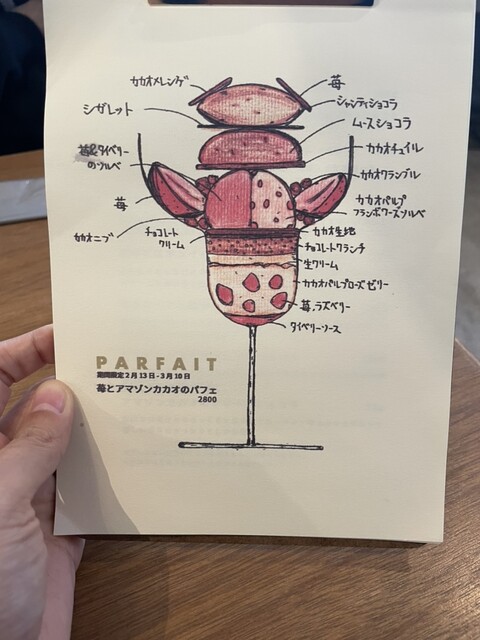 カカオメレンゲ
シガレット
苺&タイベリー
のソルベ
苺
カカオニブ
チョコレート
クリーム
苺
シャンティショコラ
ムースショコラ
カカオチュイル
カカオクランブル
カカオパルプ
フランボワーズソルベ
カカオ生地
チョコレートクランチ
生クリーム
カカオパルプローズゼリー
苺、ラズベリー
タイベリーソース
PARFAIT
期間限定2月13日-3月10日
苺とアマゾンカカオのパフェ
2800